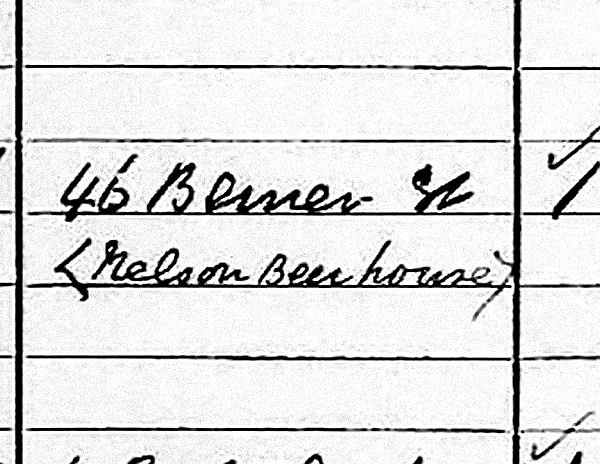 46 Berner St
(Nelson Beerhouse)